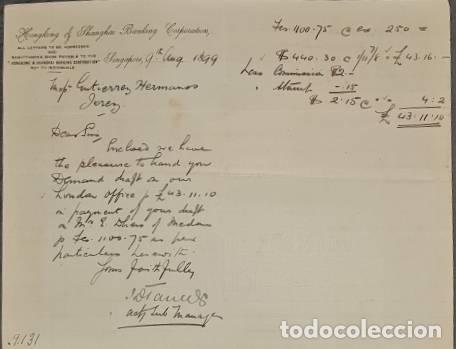 Hongkong & Shanghai Banking Corporation,
ALL LETTERS TO BE ADDRESSED
AND
REMITTANCES MADE PAYABLE TO THE
"HONGKONG & SHANGHAI BANKING CORPORATION"
NOT TO INDIVIDUALS
Singapore, 9th Aug 1899
Messrs Gutierrez Hermanos
Jerez
Dear Sirs
Enclosed we have
the pleasure to hand your
Demand draft on our
London Office p £43.11.10
in payment of your draft
on Mr E. of Medan
p Fcs. 1100.75 as per
particulars herewith
Yours faithfully
actg Sub Manager
Fcs. 1100.75 @ ex 250 =
$ 440.30 @ £43.16.-
Less Commission $2.-
Stamp -.15
$ 2.15 @ 4:2
£ 43.11.10
9131
todocoleccion.net